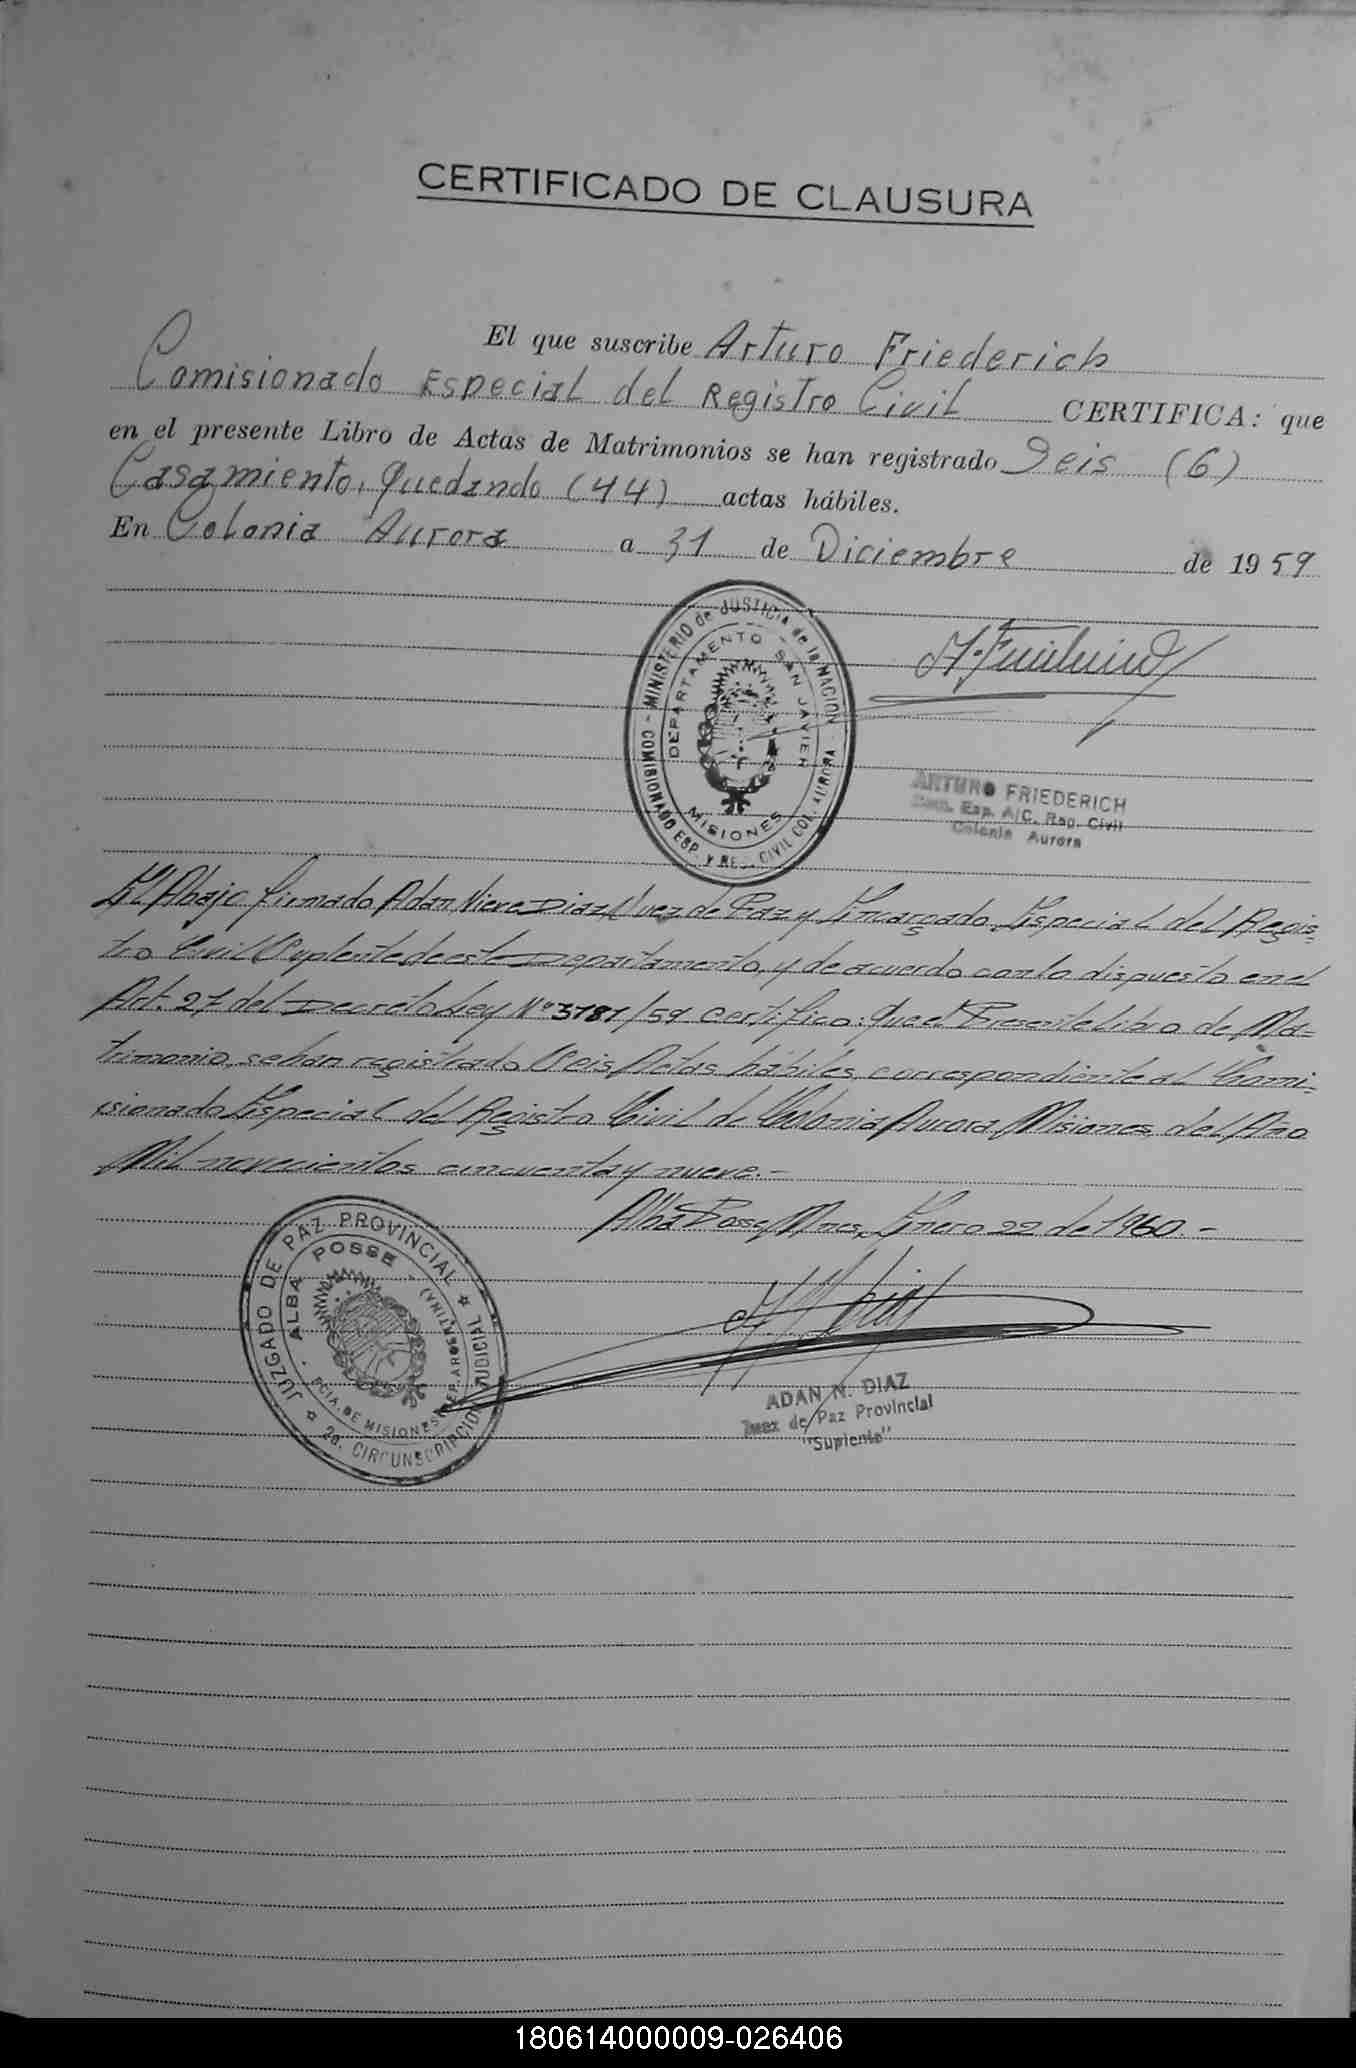 CERTIFICADO DE CLAUSURA
El que suscribe Arturo Friederich
Comisionado Especial del Registro Civil CERTIFICA: que
en el presente Libro de Actas de Matrimonios se han registrado Seis (6)
Casamiento, Quedando (44) actas hábiles.
En Colonia Aurora a 31 de Diciembre de 1959
MINISTERIO de JUSTICIA de la NACION
DEPARTAMENTO SAN JAVIER
MISIONES
COMISIONADO ESP. Y REG. CIVIL COL. AURORA
ARTURO FRIEDERICH
Com. Esp. A/C. Reg. Civil
Colonia Aurora
El Abajo firmado Adan Nieve Diaz Juez de Paz y Encargado Especial del Regis-
tro Civil Suplente de este Departamento, y de acuerdo con lo dispuesto en el
Art. 27 del Decreto Ley Nº 3181/59 Certifico: Que el Presente Libro de Ma-
trimonio, se han registrado Seis Actas hábiles, correspondiente al Comi-
sionado Especial del Registro Civil de Colonia Aurora, Misiones, del Año
Mil novecientos cincuenta y nueve.-
Alba Posse, Mnes, Enero 22 de 1960.-
JUZGADO DE PAZ PROVINCIAL
ALBA POSSE
PCIA. DE MISIONES (REP. ARGENTINA)
2a. CIRCUNSCRIPCION JUDICIAL
ADAN N. DIAZ
Juez de Paz Provincial
"Suplente"
180614000009-026406